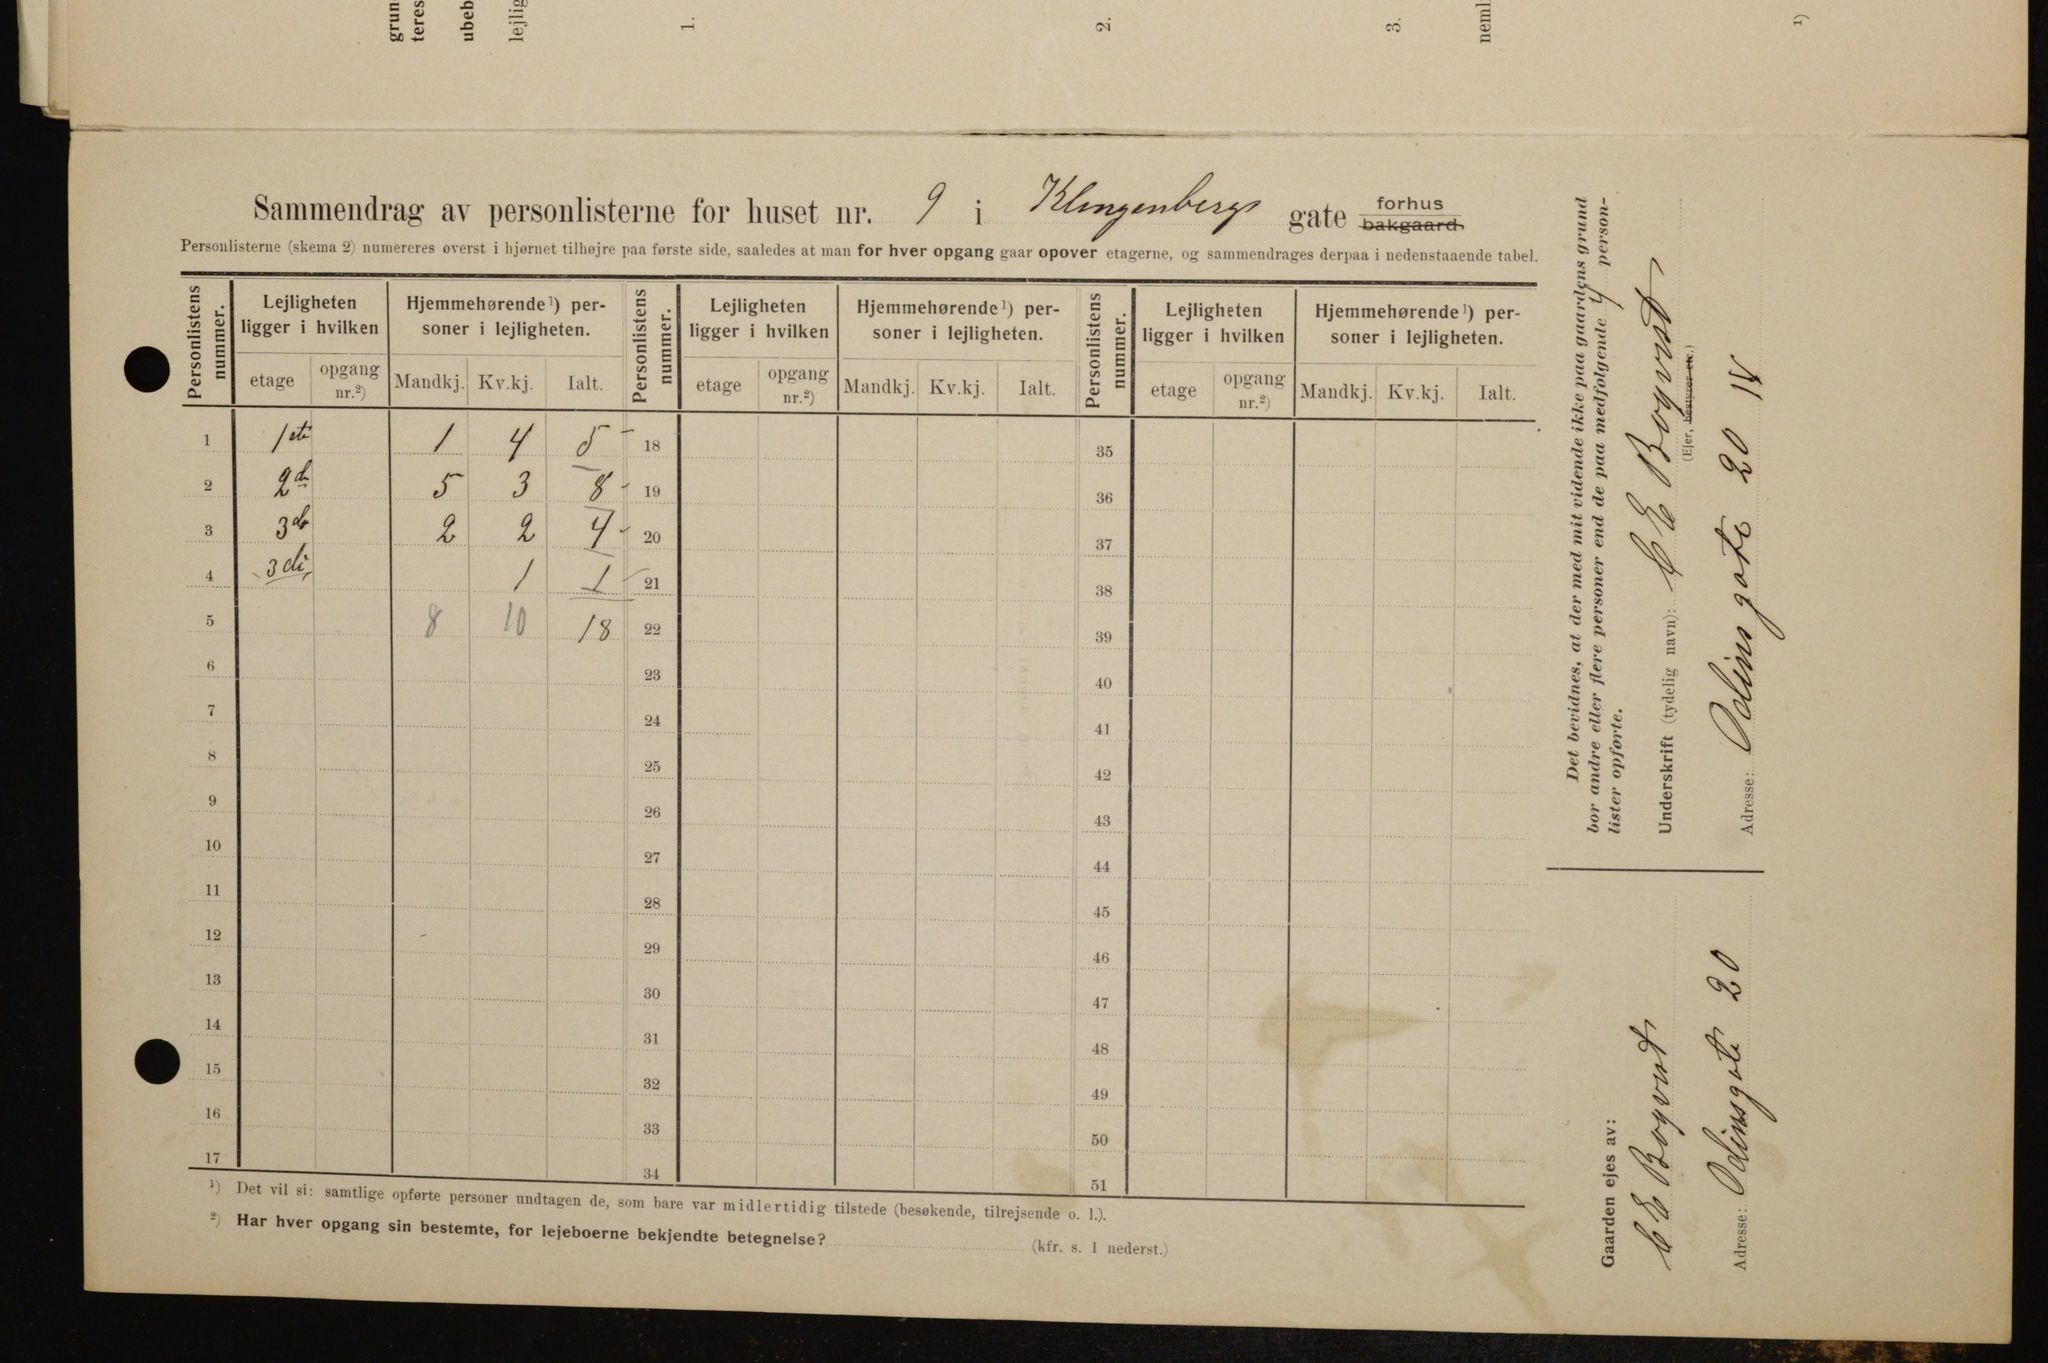 grun
teres
ubeb
lejlig
1.
2.
3.
neml
1)
Sammendrag av personlisterne for huset nr. 9 i Klingenbergs gate forhus bakgaard.
Personlisterne (skema 2) numereres øverst i hjørnet tilhøjre paa første side, saaledes at man for hver opgang gaar opover etagerne, og sammendrages derpaa i nedenstaaende tabel.
Personlistens nummer. Lejligheten ligger i hvilken Hjemmehørende 1) personer i lejligheten. Personlistens nummer. Lejligheten ligger i hvilken Hjemmehørende 1) personer i lejligheten. Personlistens nummer. Lejligheten ligger i hvilken Hjemmehørende 1) personer i lejligheten.
etage opgang nr.2) Mandkj. Kv.kj. Ialt. etage opgang nr.2) Mandkj. Kv.kj. Ialt. etage opgang nr.2) Mandkj. Kv.kj. Ialt.
1 1ste 1 4 5 18 35
2 2de 5 3 8 19 36
3 3de 2 2 4 20 37
4 3di 1 1 21 38
5 8 10 18 22 39
6 23 40
7 24 41
8 25 42
9 26 43
10 27 44
11 28 45
12 29 46
13 30 47
14 31 48
15 32 49
16 33 50
17 34 51
1) Det vil si: samtlige opførte personer undtagen de, som bare var midlertidig tilstede (besøkende, tilrejsende o. l.).
2) Har hver opgang sin bestemte, for lejeboerne bekjendte betegnelse? (kfr. s. 1 nederst.)
Det bevidnes, at der med mit vidende ikke paa gaardens grund
bor andre eller flere personer end de paa medfølgende 4 person-
lister opførte.
Underskrift (tydelig navn): C E Bogvist
(Ejer, bestyrer etc.)
Adresse: Odins gate 20 IV
Gaarden ejes av:
C E Bogvist
Adresse: Odinsgate 20